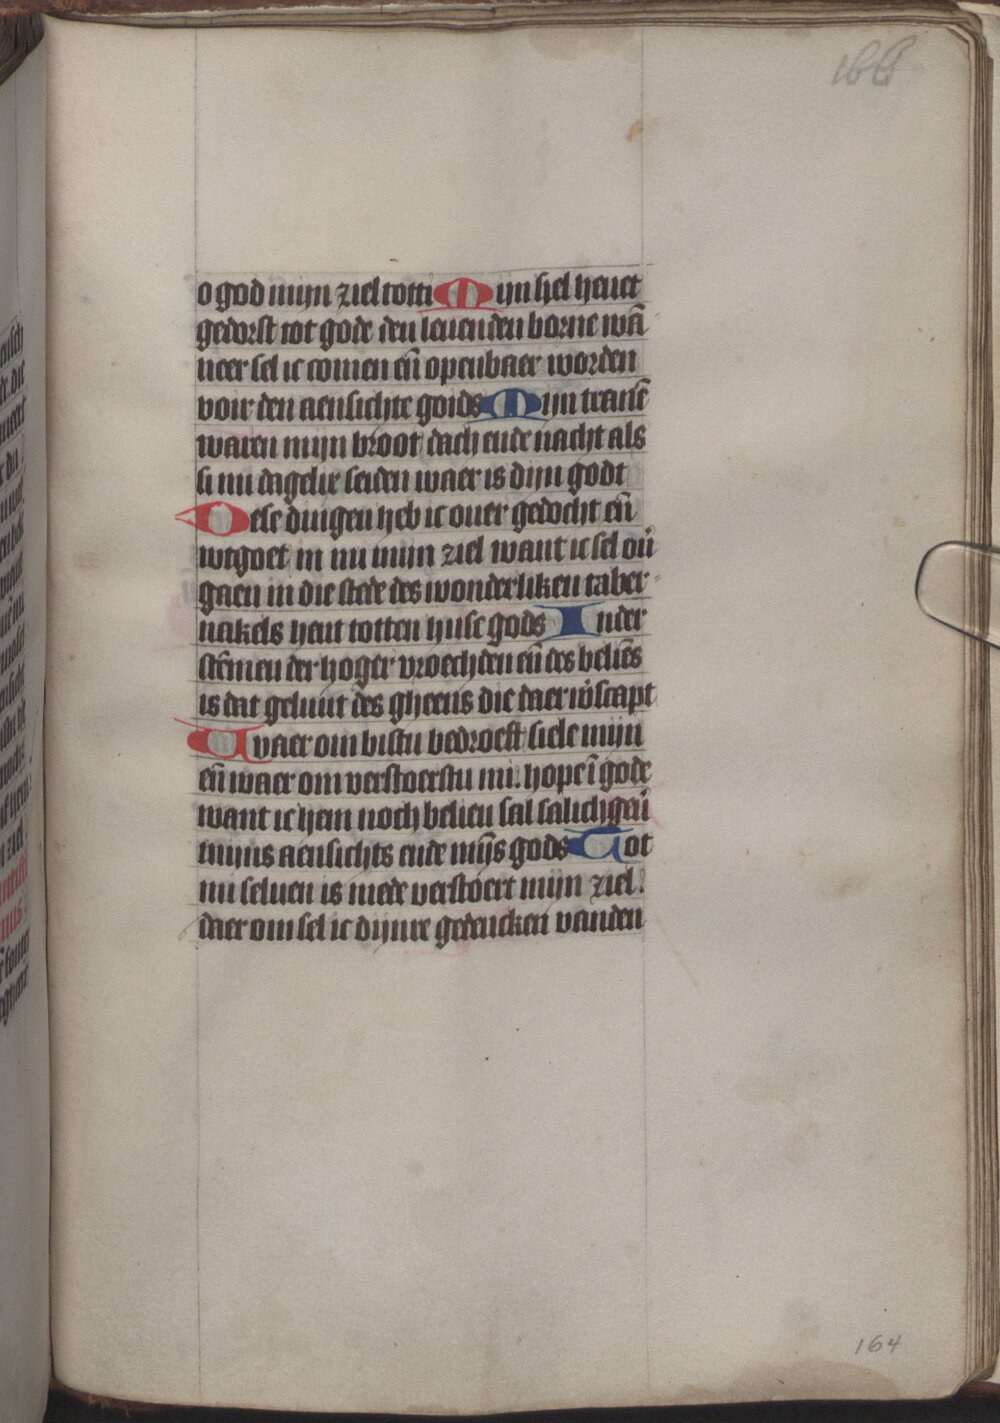 166
o god mijn ziel totti Mijn siel heuet
gedorst tot gode den leuenden borne wā
neer sel ic comen eñ openbaer worden
voir den aensichte goids Mijn tranē
waren mijn broot dach ende nacht als
si mi dagelix seiden waer is dijn godt
Dese dingen heb ic ouer gedocht eñ
wtgoet in mi mijn ziel want ic sel ou̅
gaen in die stede des wonderliken taber-
nakels hent totten huse gods In der
stēmen der hoger vroechden eñ des beliēs
is dat geluut des gheens die daer w̅scapt
Waer om bistu bedroeft siele mijn
eñ waer om verstoerstu mi. hope ī gode
want ic hem noch belien sal salichgeu̅
mijns aensichts ende mijs gods Tot
mi seluen is mede verstoert mijn ziel.
daer om sel ic dijnre gedencken vanden
164